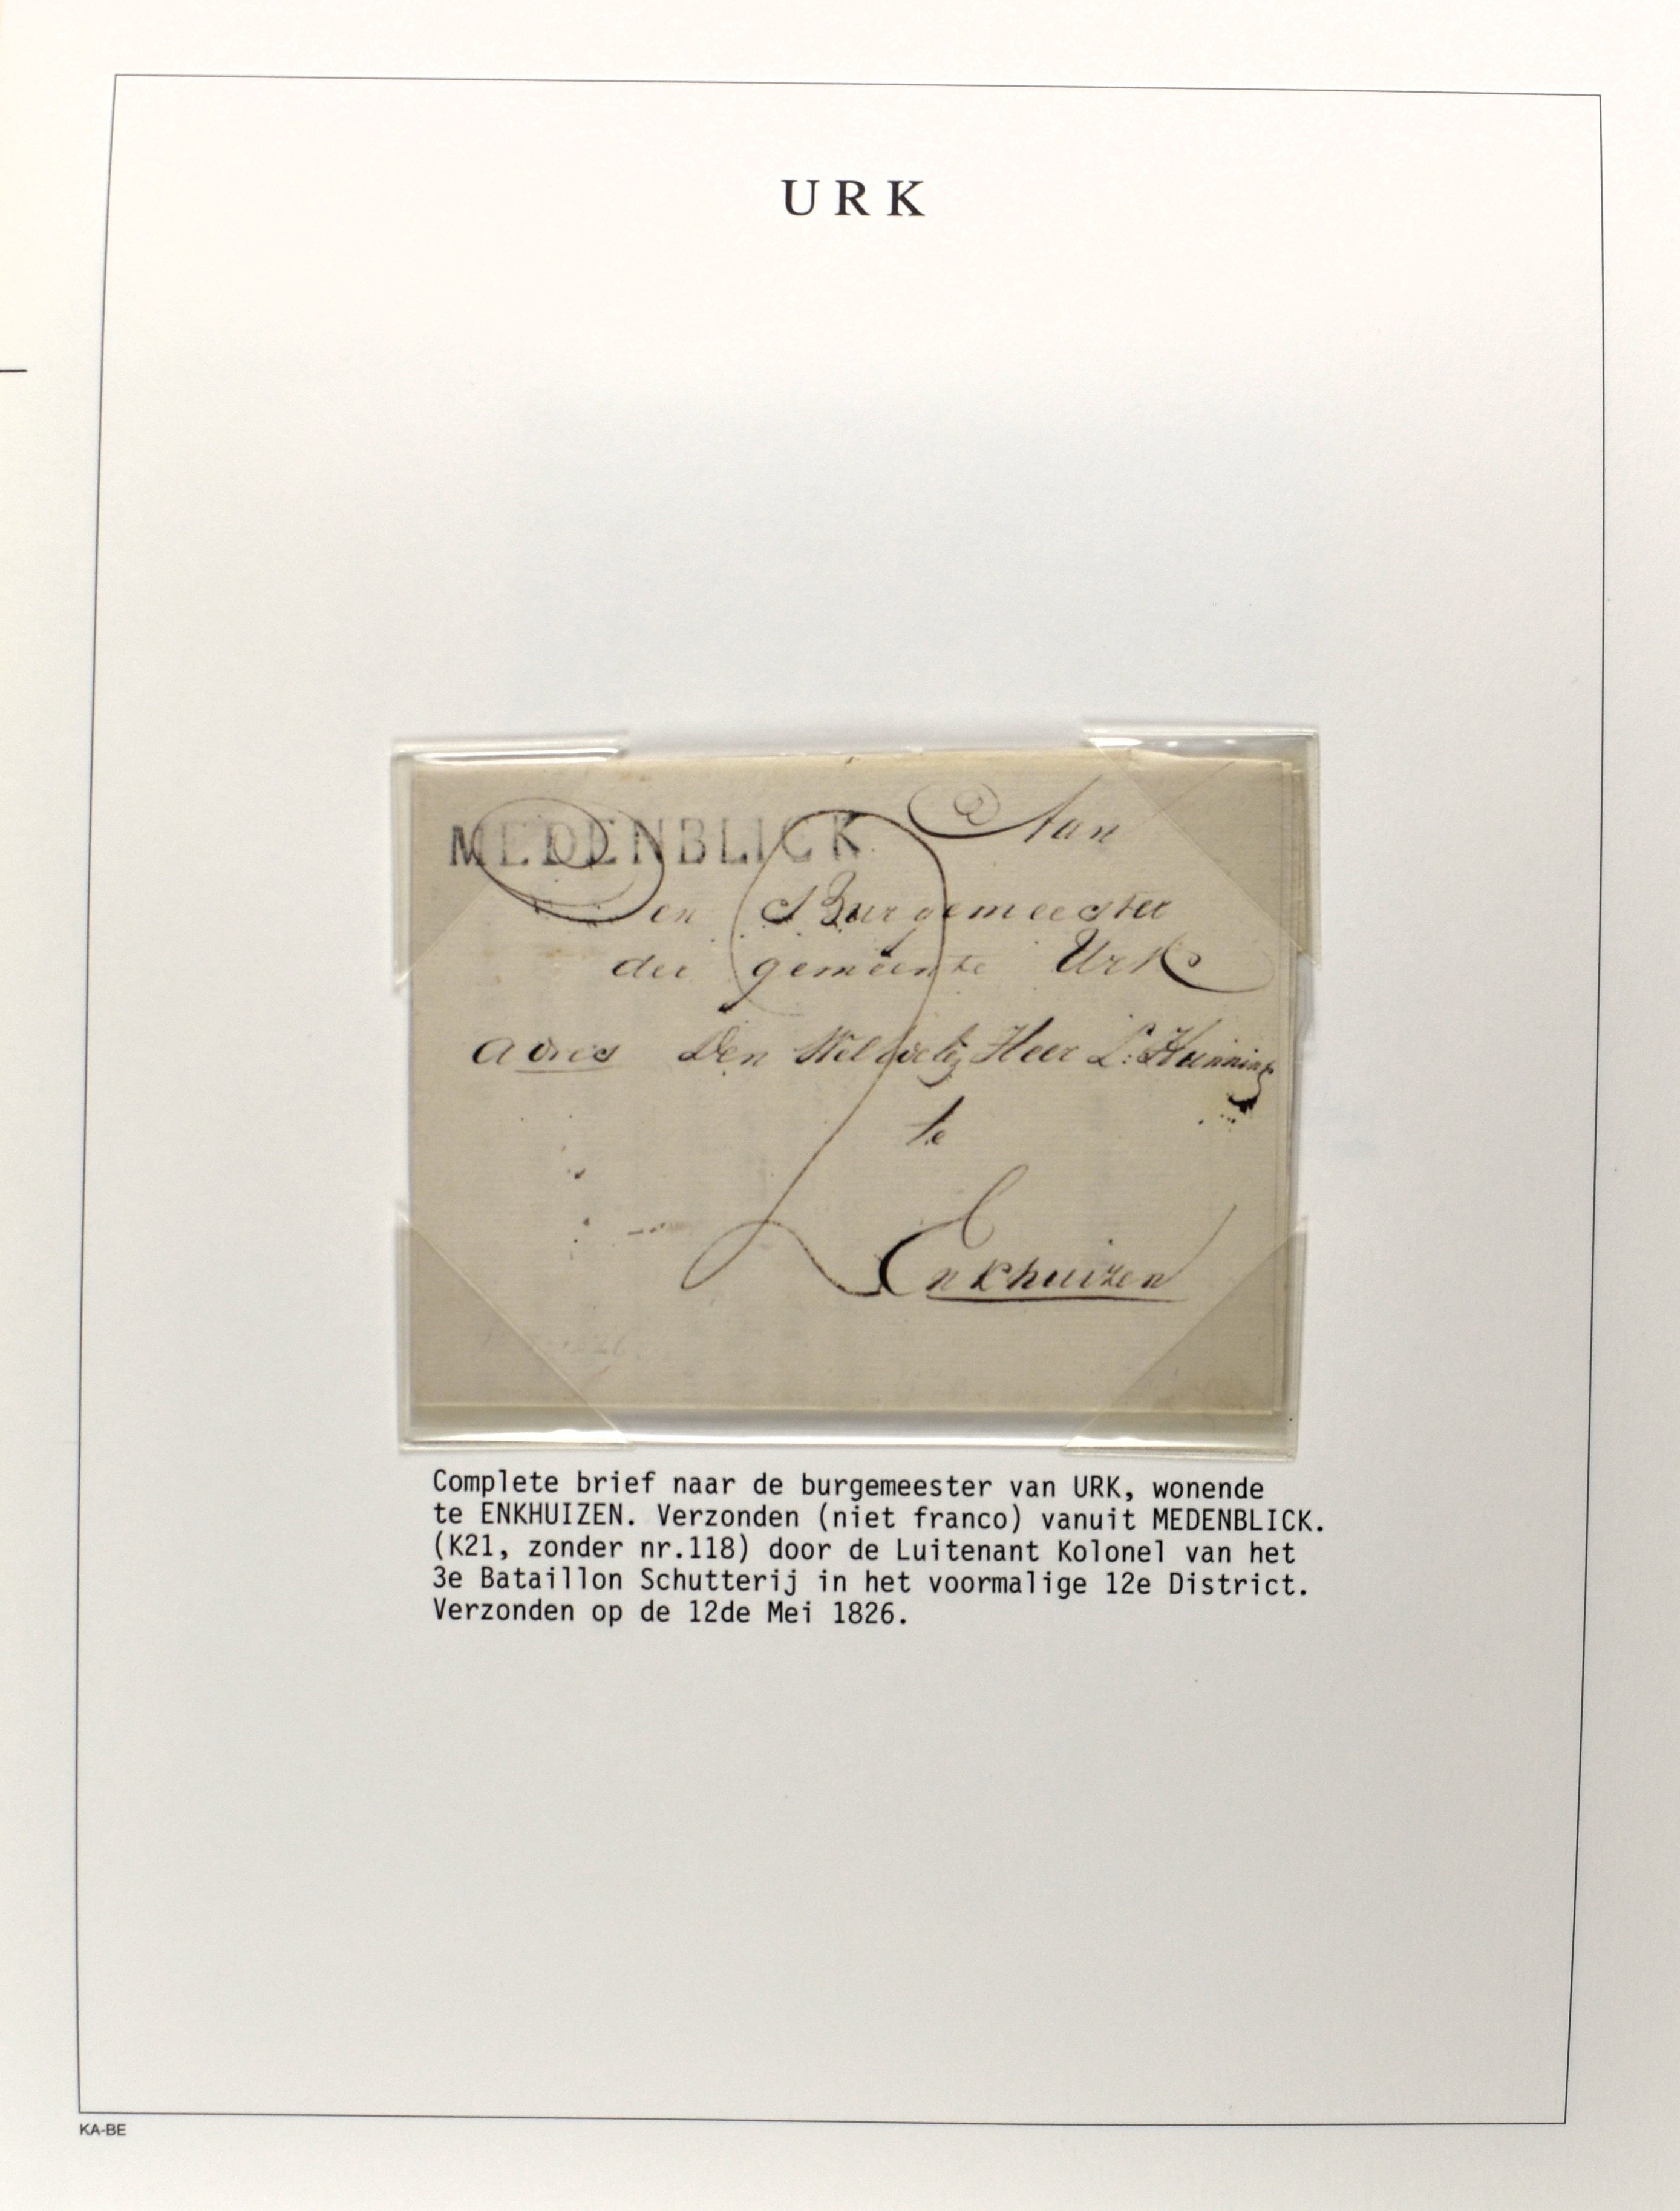 URK
MEDENBLICK
Aan
Den Burgemeester
der gemeente Urk
Adres Den Wel Heer L: Hunning
te
Enkhuizen
Complete brief naar de burgemeester van URK, wonende
te ENKHUIZEN. Verzonden (niet franco) vanuit MEDENBLICK.
(K21, zonder nr.118) door de Luitenant Kolonel van het
3e Bataillon Schutterij in het voormalige 12e District.
Verzonden op de 12de Mei 1826.
KA-BE